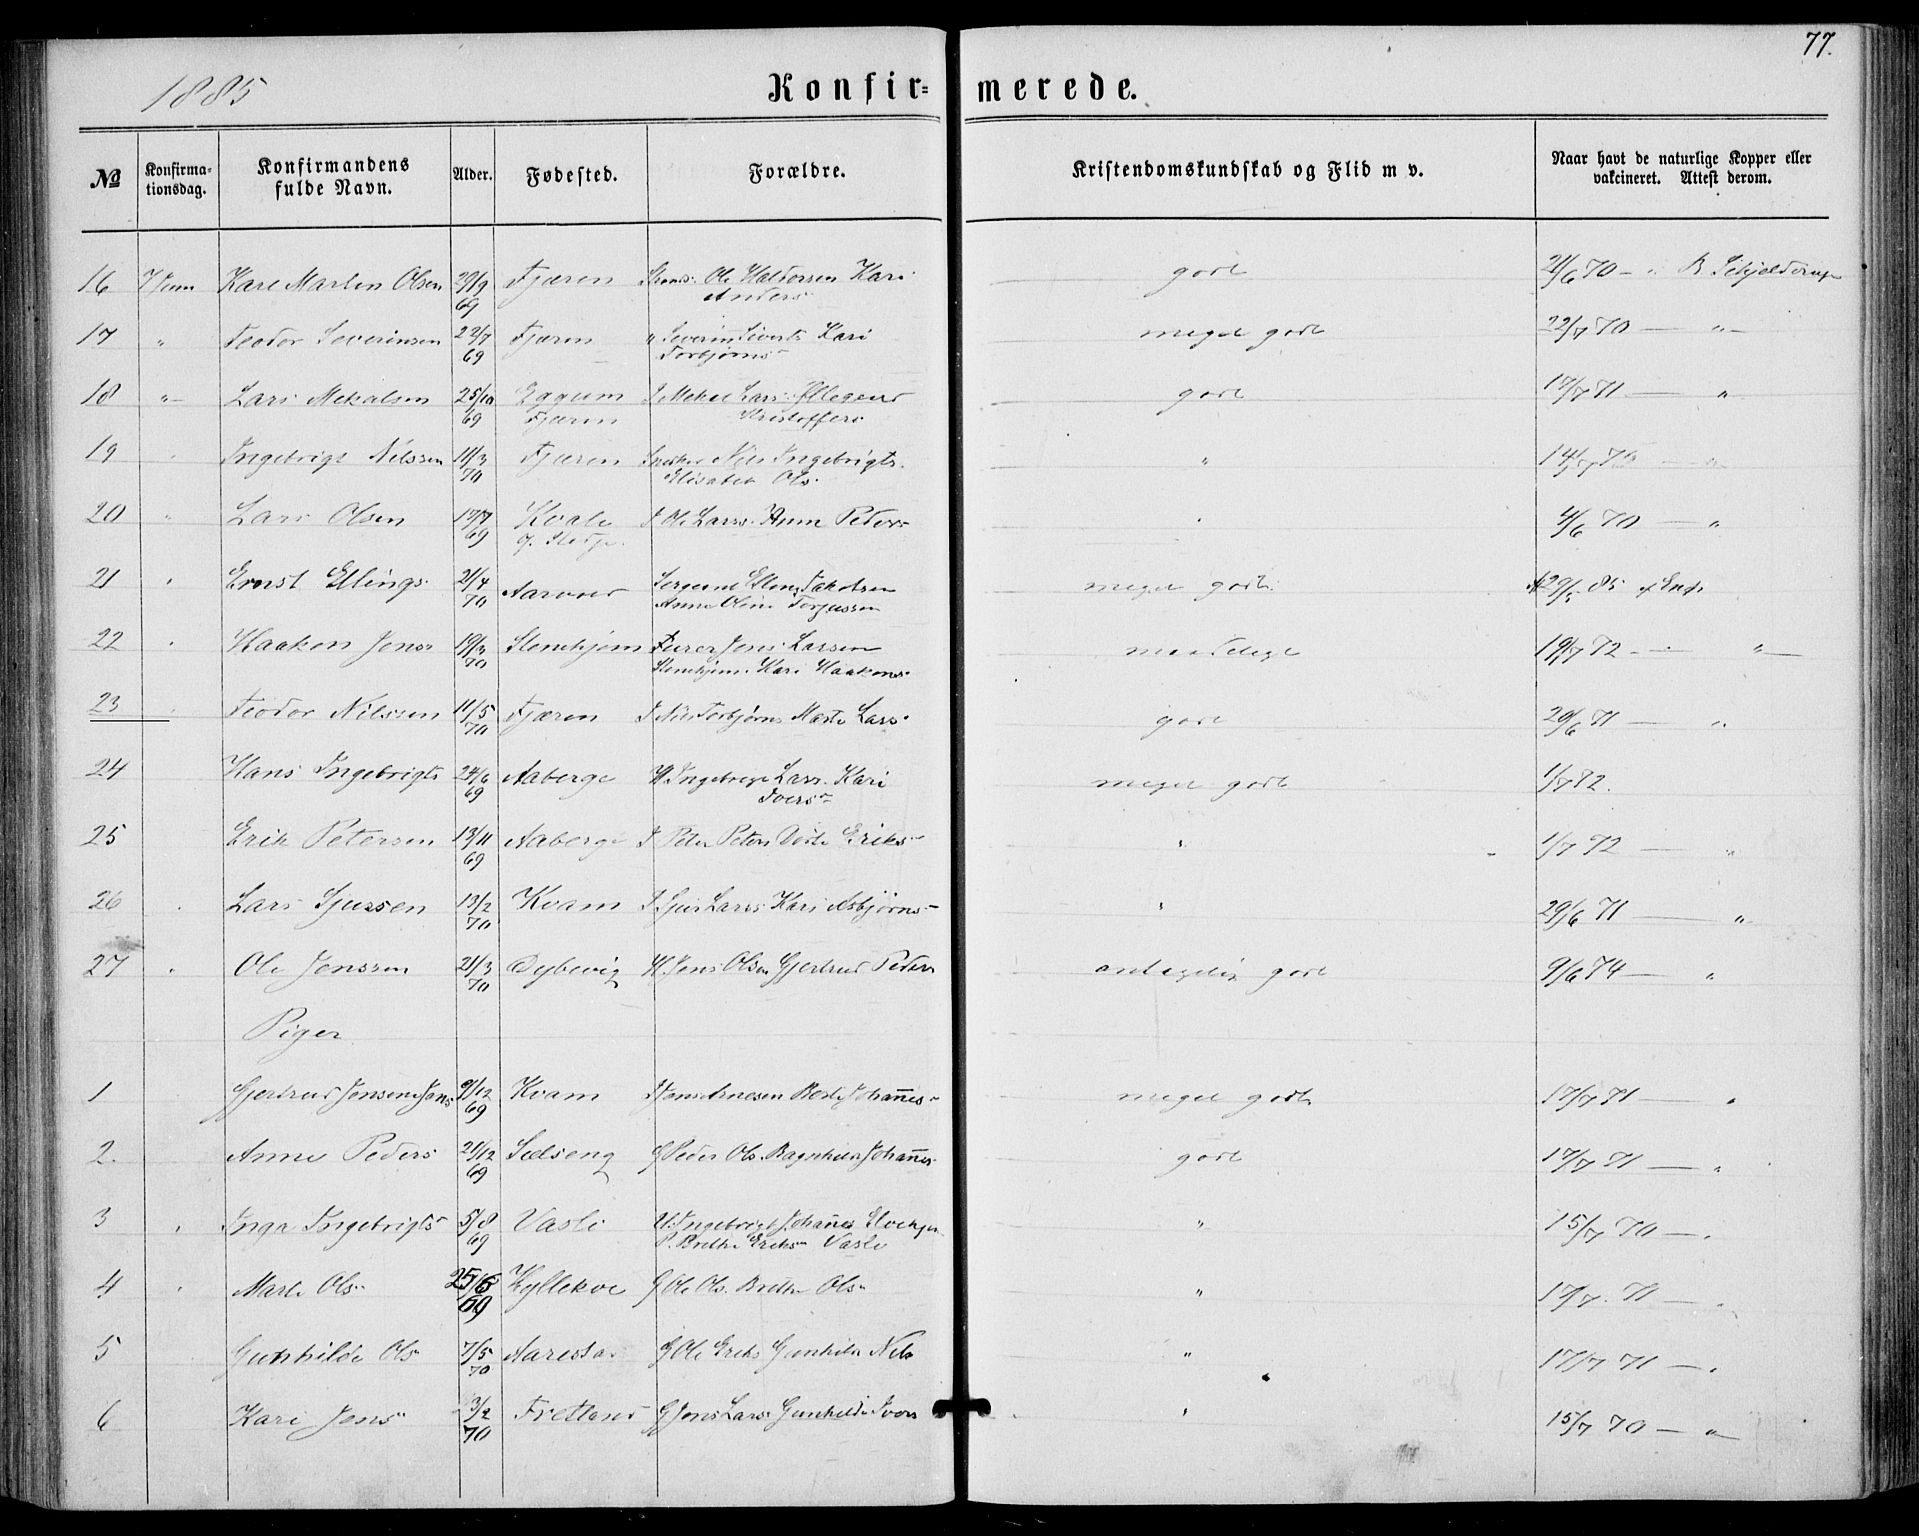 77.
1885
Konfir=merede.
№ Konfirma-tionsdag. Konfirmandens fulde Navn. Alder. Fødested. Forældre. Kristendomskundskab og Flid m v. Naar havt de naturlige Kopper eller vakcineret. Attest derom.
16 7 Juni Kare Martin Olsen 29/9 69 Fjæren Ole Haldorsen Kari Anders godt 21/6 70 — " R Schjelderup
17 " Teodor Severinsen 22/7 69 Fjæren " Severin Siverts Kari Torbjørns meget godt 22/7 70 — "
18 " Lars Mekalsen 25/10 69 Eggum Fjæren Mekel Lars Kristoffers godt 17/7 71 — "
19 " Ingebrigt Nilssen 11/3 70 Fjæren Nils Ingebrigts. Elisabet Ols. " 14/7 — "
20 " Lars Olsen 17/7 69 Kvale Ole Larss. Anne Peders " 4/6 70 — "
21 " Ernst Ellings 21/4 70 Elling Jakobsen Anne Oline Torjussen meget godt 29/5 85
22 " Haakon Jens 19/3 70 Stenehjem Jens Larsen Stenehjem. Kari Haakons maadeligt 19/7 72 — "
23 " Teodor Nilssen 11/5 70 Fjæren I Nils Torbjørns Marte Lars godt 29/6 71 — "
24 Hans Ingebrigts 24/6 69 Aaberge H Ingebrigt Larss. Kari Ivers meget godt 1/7 82.
25 Erik Petersen 13/11 69 Aaberge I Peter Peters Dorte Eriks " 1/7 72 — "
26 " Lars Sjurssen 13/2 70 Kvam I Sjur Larss Kari Asbjørns " 29/6 71 — "
27 " Ole Jenssen 21/3 70 Dybevig H. Jens Olsen Gjertrud Peders antagelig godt 9/6 74 — "
Piger
1 Gjertrud Jensine Jans 9/12 69 Kvam Arnesen Johannes meget godt 17/7 71 — "
2. Anne Peders 21/12 69 Sælseng G Peder Ols. Ragnhild Johannes godt 17/7 71 — "
3 " Inga Ingebrigts 5/8 69 Vasli Ingebrigt Johannes P. Brethe Eriks Vasli " 15/7 70 — "
4 " Marte Ols 25/6 69 Hyllekve G Ole Ols. Brethe Ols " 17/7 71 — "
5 Gunhilde Ols 7/5 70 G Ole Eriks Gunhild Nils " 17/7 71 — "
6 Kari Jens 3/2 70 Fretland G Jens Lars Gunhilde Ivers " 15/7 70 — "